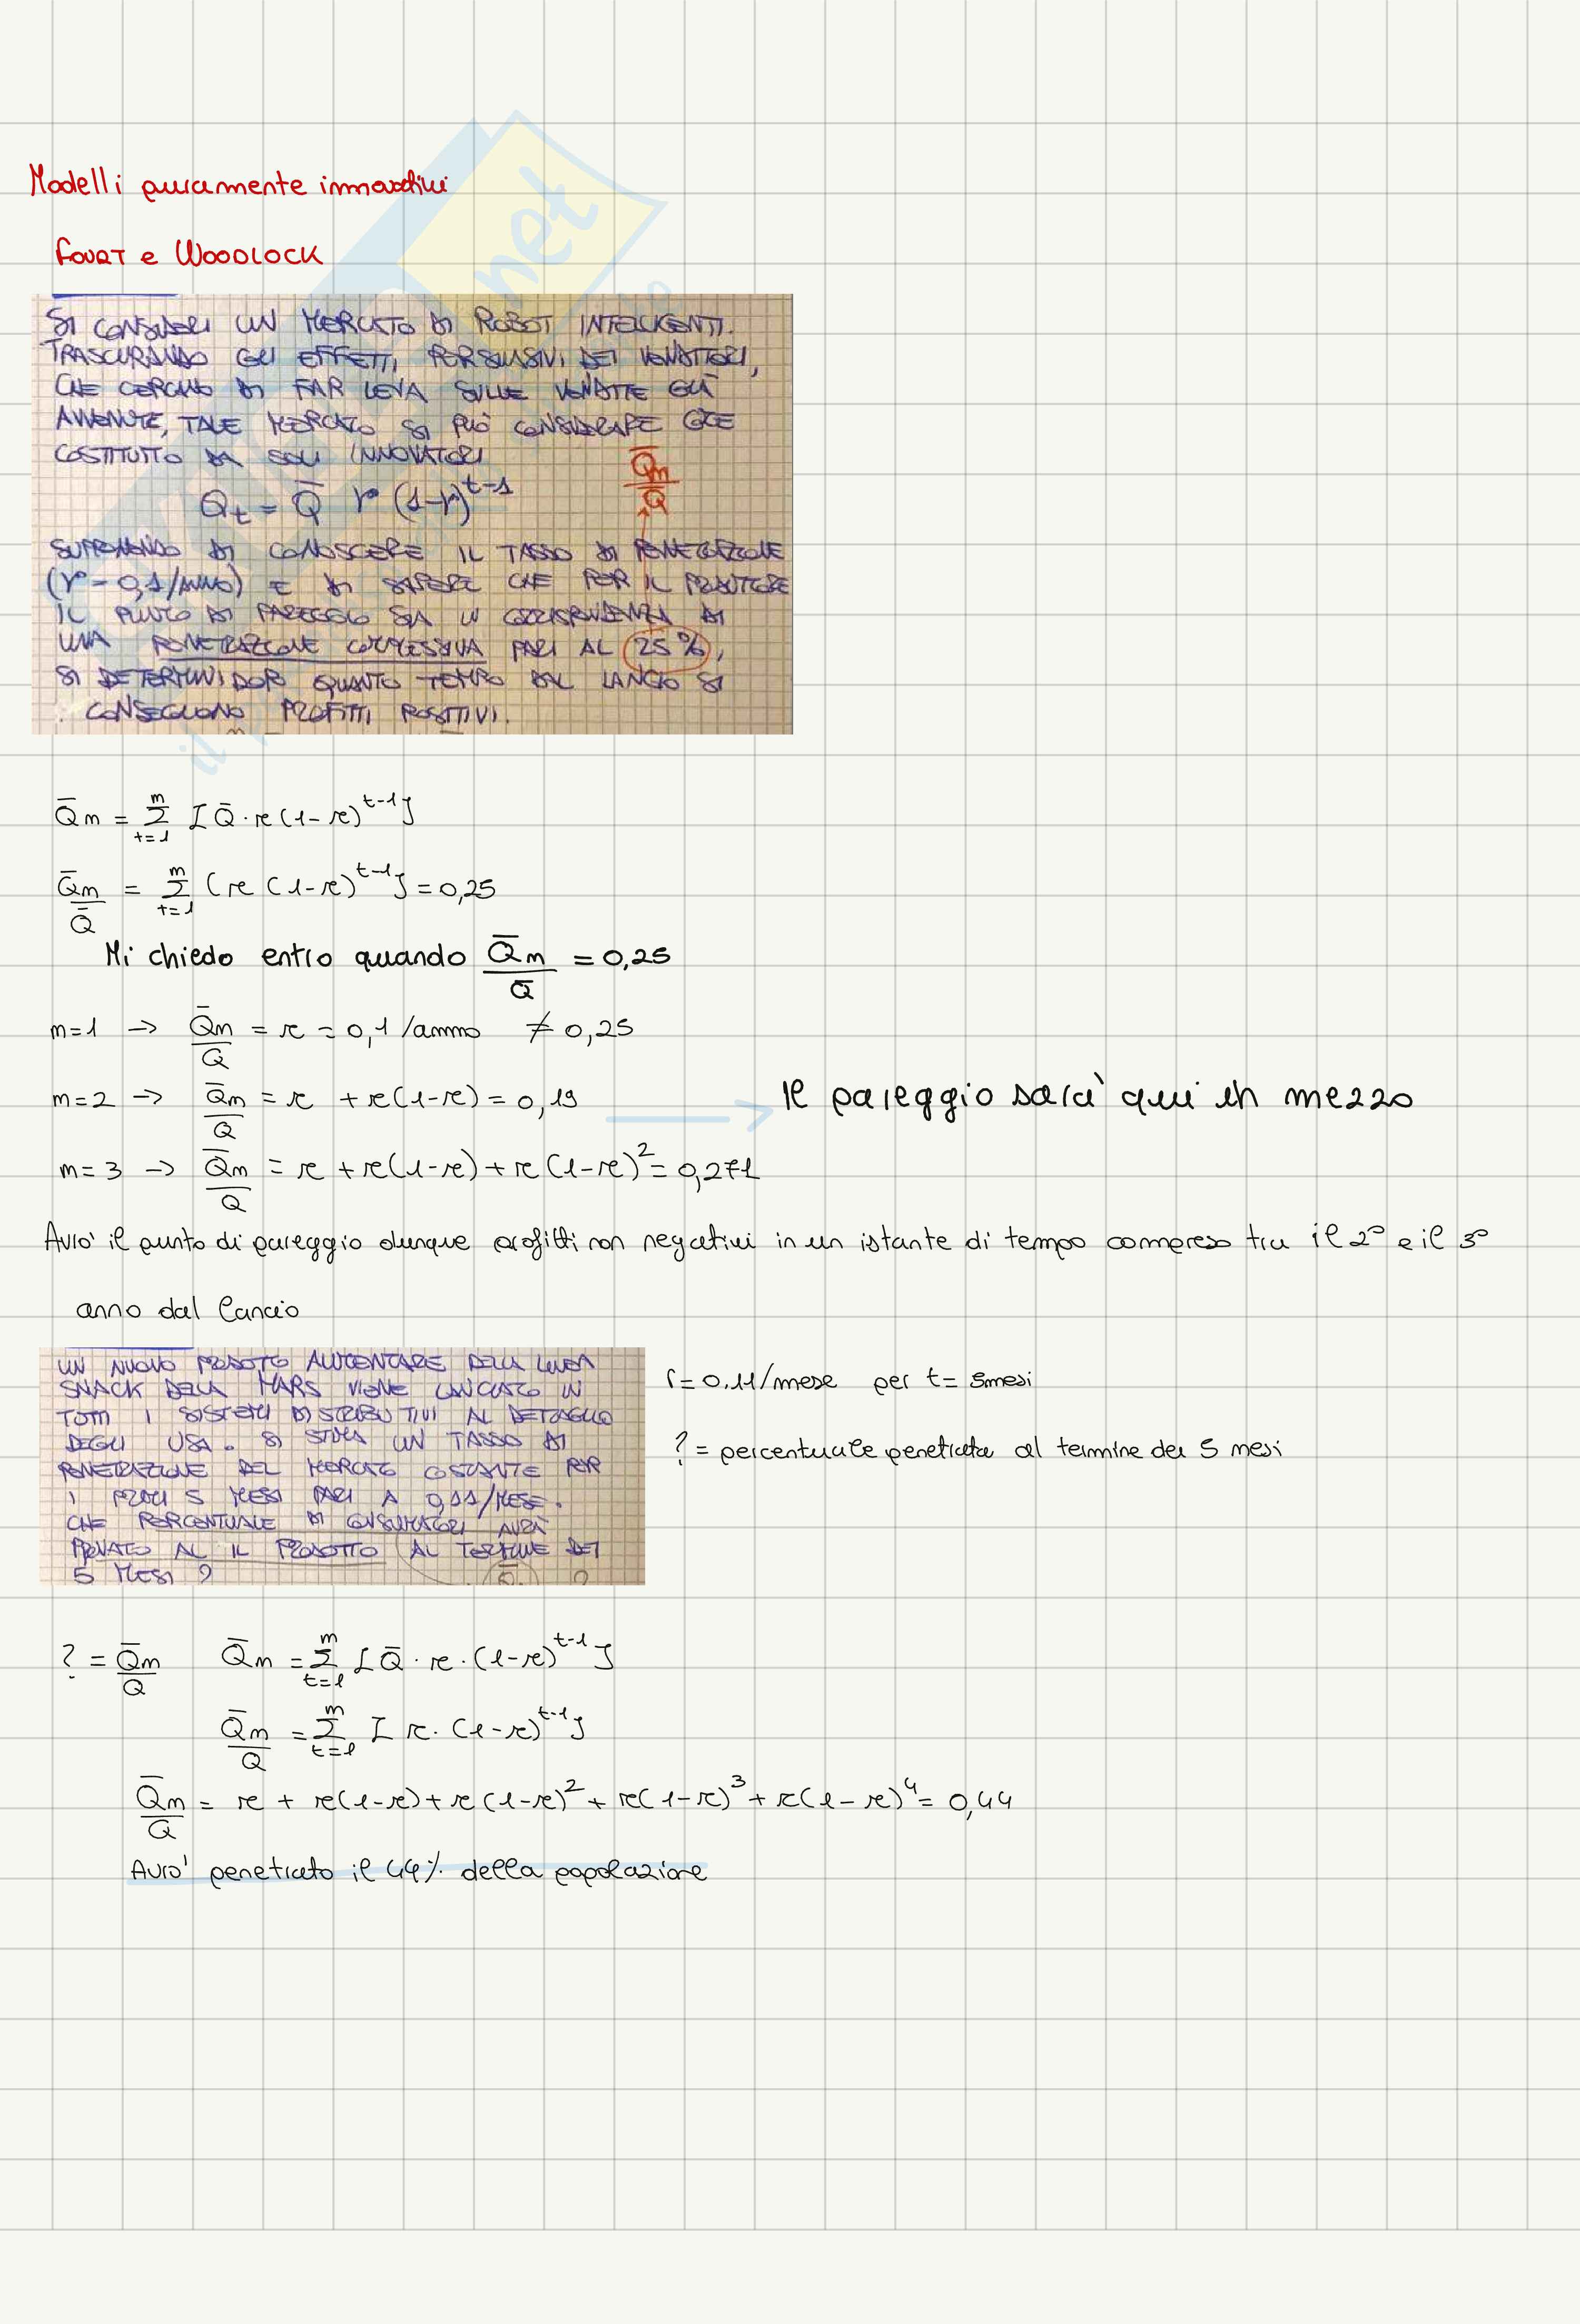 Modelli puramente innovativi
FOURT e WOODLOCK
SI CONSIDERI UN MERCATO DI ROBOT INTELLIGENTI.
TRASCURANDO GLI EFFETTI PERSUASIVI DEI VENDITORI,
CHE CERCANO DI FAR LEVA SULLE VENDITE GIÀ
AVVENUTE, TALE MERCATO SI PUÒ CONSIDERARE COME
COSTITUITO DA SOLI INNOVATORI
Q̅m / Q̅
Qt = Q̅ r (1-r)^t-1
SUPPONENDO DI CONOSCERE IL TASSO DI PENETRAZIONE
(r = 0,1/ANNO) E DI SAPERE CHE PER IL PRODUTTORE
IL PUNTO DI PAREGGIO SIA IN CORRISPONDENZA DI
UNA PENETRAZIONE COMPLESSIVA PARI AL 25%,
SI DETERMINI DOPO QUANTO TEMPO DAL LANCIO SI
CONSEGUONO PROFITTI POSITIVI.
Q̅m = Σ m t=1 [Q̅ · r (1-r)^t-1]
Q̅m / Q̅ = Σ m t=1 [r (1-r)^t-1] = 0,25
Mi chiedo entro quando Q̅m / Q̅ = 0,25
m=1 → Q̅m / Q = r = 0,1 /anno ≠ 0,25
m=2 → Q̅m / Q = r + r(1-r) = 0,19 → Il pareggio sarà qui in mezzo
m=3 → Q̅m / Q = r + r(1-r) + r(1-r)^2 = 0,271
Avrò il punto di pareggio dunque profitti non negativi in un istante di tempo compreso tra il 2° e il 3°
anno dal lancio
UN NUOVO PRODOTTO ALIMENTARE DELLA LINEA
SNACK DELLA MARS VIENE LANCIATO IN
TUTTI I SISTEMI DISTRIBUTIVI AL DETTAGLIO
DEGLI USA. SI STIMA UN TASSO DI
PENETRAZIONE DEL MERCATO COSTANTE PER
I PRIMI 5 MESI PARI A 0,11/MESE.
CHE PERCENTUALE DI CONSUMATORI AVRÀ
PROVATO AL IL PRODOTTO AL TERMINE DEI
5 MESI ?
r = 0.11/mese per t = 5mesi
? = percentuale penetrata al termine dei 5 mesi
? = Q̅m / Q Q̅m = Σ m t=1 [Q̅ · r · (1-r)^t-1]
Q̅m / Q = Σ m t=1 [r · (1-r)^t-1]
Q̅m / Q = r + r(1-r) + r(1-r)^2 + r(1-r)^3 + r(1-r)^4 = 0,44
Avrò penetrato il 44% della popolazione